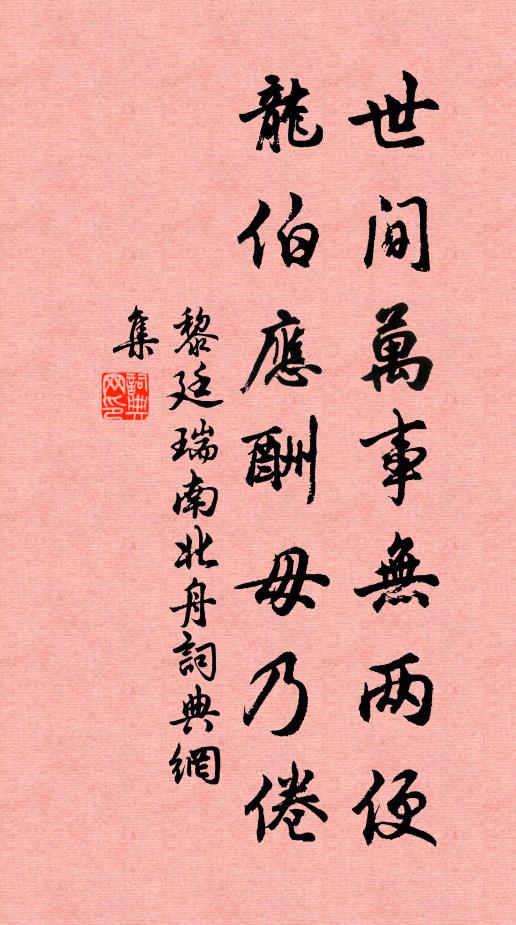 世间萬事無两便
龍伯應酬毋乃倦
黎廷瑞南北舟詞典網
集
詞典網印